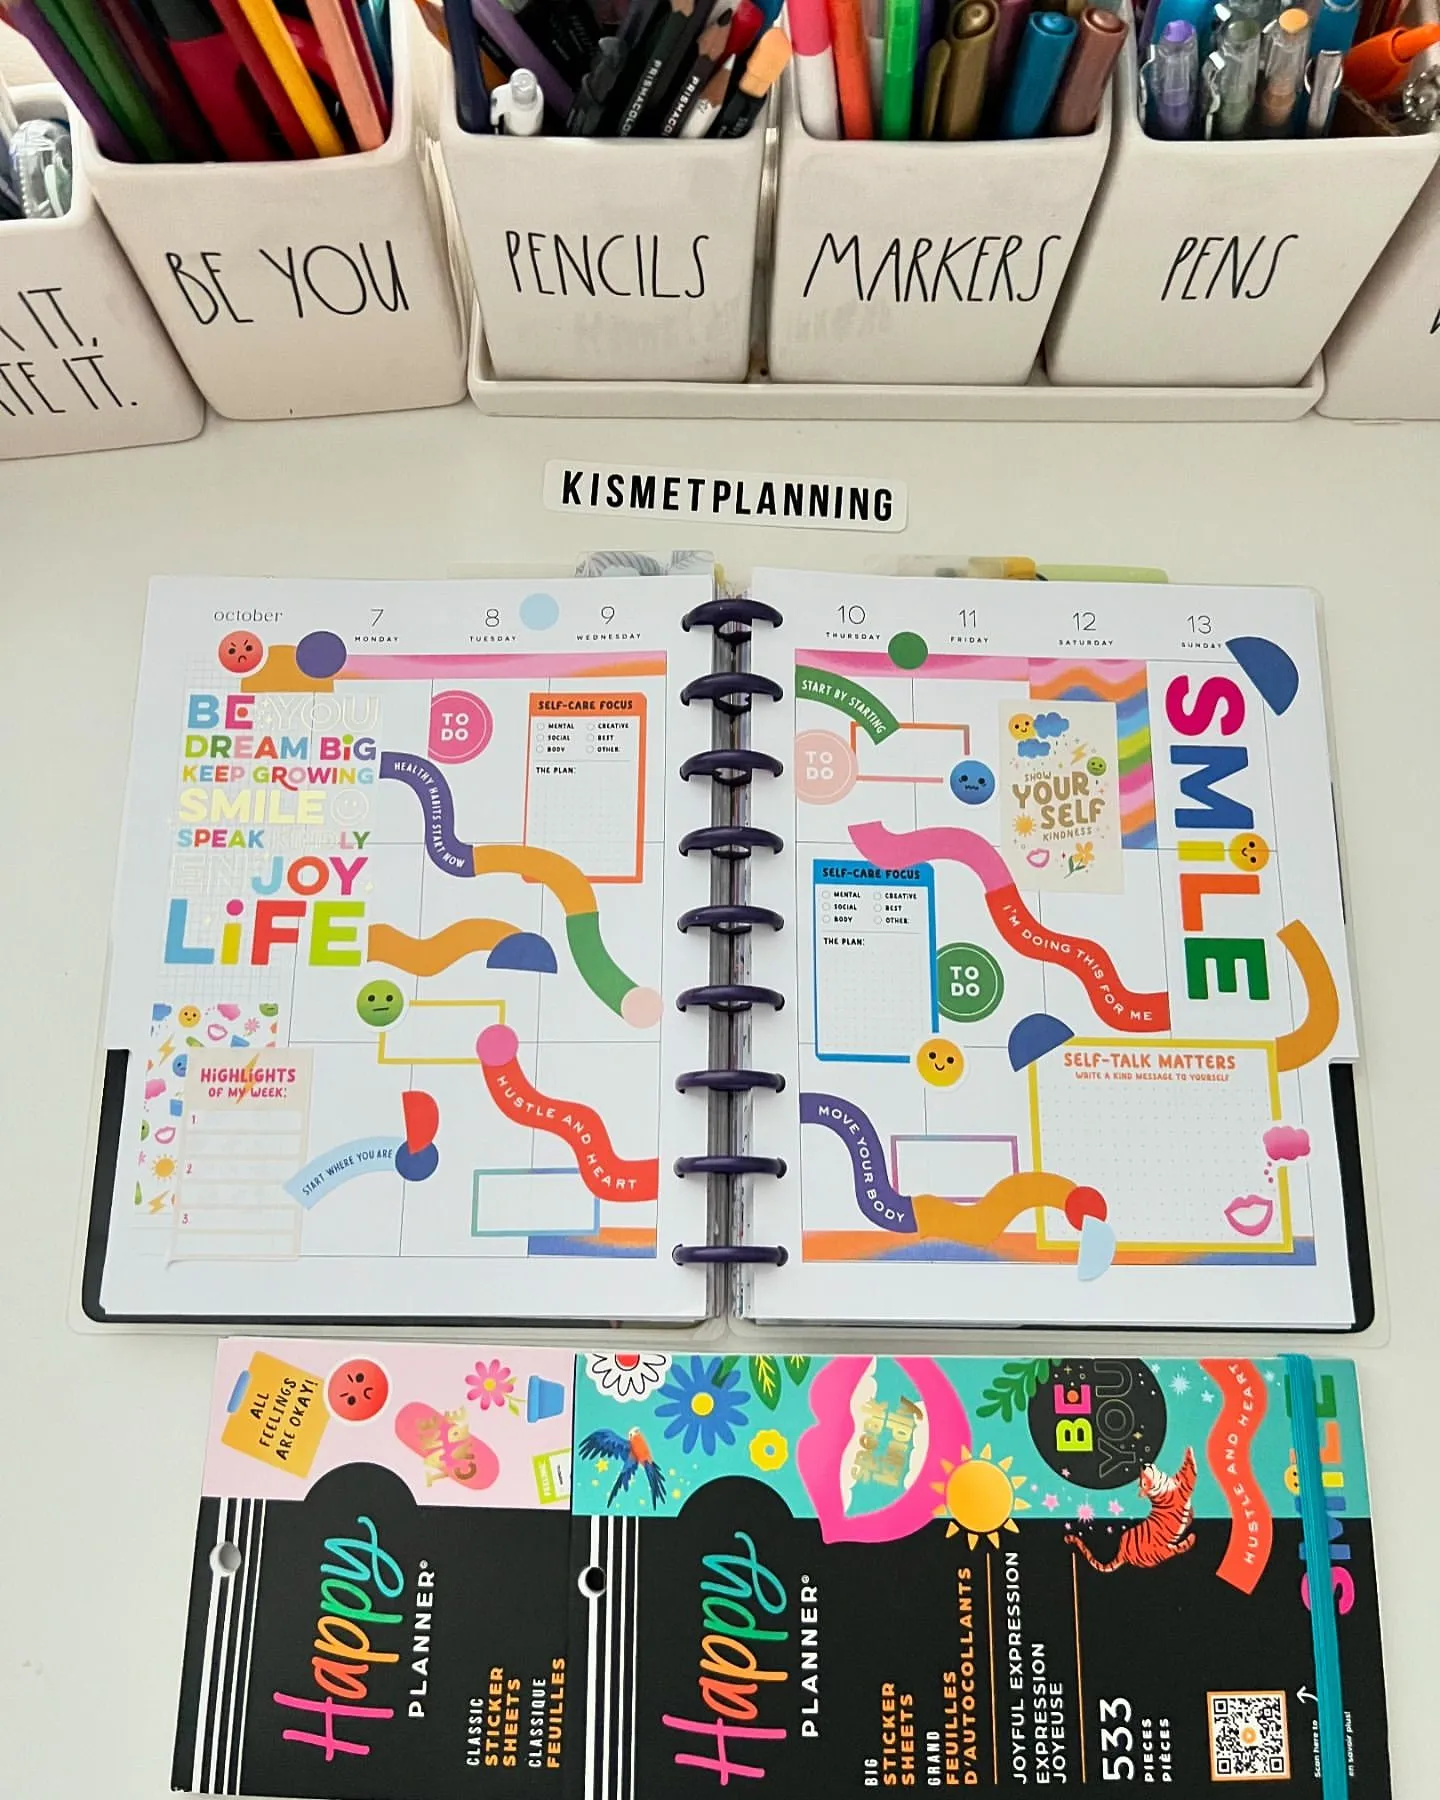 IT,
TE IT.
BE YOU
PENCILS
MARKERS
PENS
PRISMACOLOR
PRISMA
KISMETPLANNING
october
7
MONDAY
8
TUESDAY
9
WEDNESDAY
BE YOU
DREAM BiG
KEEP GROWING
SMILE
SPEAK KINDLY
ENJOY
LiFE
TO
DO
SELF-CARE FOCUS
MENTAL
CREATIVE
SOCIAL
REST
BODY
OTHER:
THE PLAN:
HEALTHY HABITS START NOW
HIGHLIGHTS
OF MY WEEK:
1
2
3
START WHERE YOU ARE
HUSTLE AND HEART
10
THURSDAY
11
FRIDAY
12
SATURDAY
13
SUNDAY
START BY STARTING
TO
DO
SHOW
YOUR
SELF
KINDNESS
SMiLE
SELF-CARE FOCUS
MENTAL
CREATIVE
SOCIAL
REST
BODY
OTHER:
THE PLAN:
TO
DO
I'M DOING THIS FOR ME
MOVE YOUR BODY
SELF-TALK MATTERS
WRITE A KIND MESSAGE TO YOURSELF
ALL
FEELINGS
ARE OKAY!
TAKE
CARE
FEELING
Happy
PLANNER®
CLASSIC
STICKER
SHEETS
CLASSIQUE
FEUILLES
speak
kindly
BE
YOU
HUSTLE AND HEART
SMiLE
Happy
PLANNER®
BIG
STICKER
SHEETS
GRAND
FEUILLES
D'AUTOCOLLANTS
JOYFUL EXPRESSION
EXPRESSION
JOYEUSE
533
PIECES
PIÈCES
Scan here to
en savoir plus!